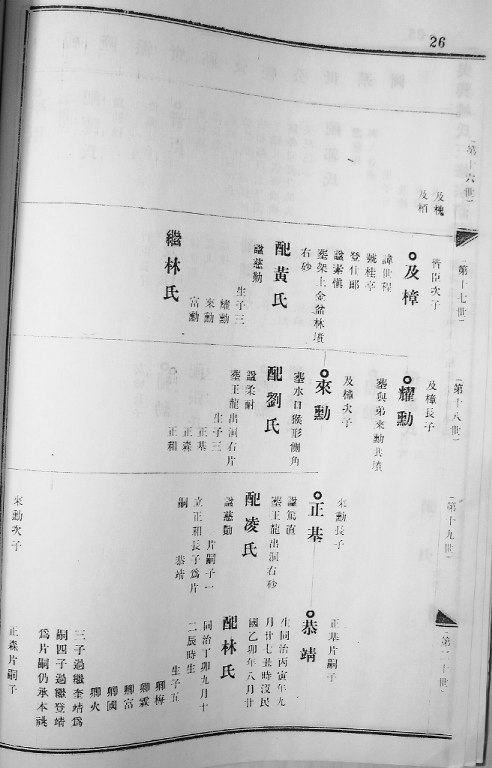 26
(第十六世)
及槐
及栢
(第十七世)
晋臣次子
及樟
諱世程
號桂亭
登仕郎
諡素愼
墓架上金盆林墳
右砂
配黃氏
諡慈勤
生子三
耀勳
來勳
富勳
繼林氏
(第十八世)
及樟長子
耀勳
墓與弟來勳共墳
及樟次子
來勳
墓水口猴形側角
配劉氏
諡柔耐
墓玉龍出洞右片
生子三
正基
正森
正和
(第十九世)
來勳長子
正基
諡篤直
墓玉龍出洞右砂
配凌氏
諡慈勤
片嗣子一
立正和長子爲片
嗣
恭靖
來勳次子
(第二十世)
正基片嗣子
恭靖
生同治丙寅年九
月廿七丑時沒民
國乙卯年八月廿
配林氏
同治丁卯九月十
二辰時生
生子五
卿梅
卿霖
卿富
卿國
卿火
三子過繼奎靖爲
嗣四子過繼登靖
爲片嗣仍承本祧
正森片嗣子